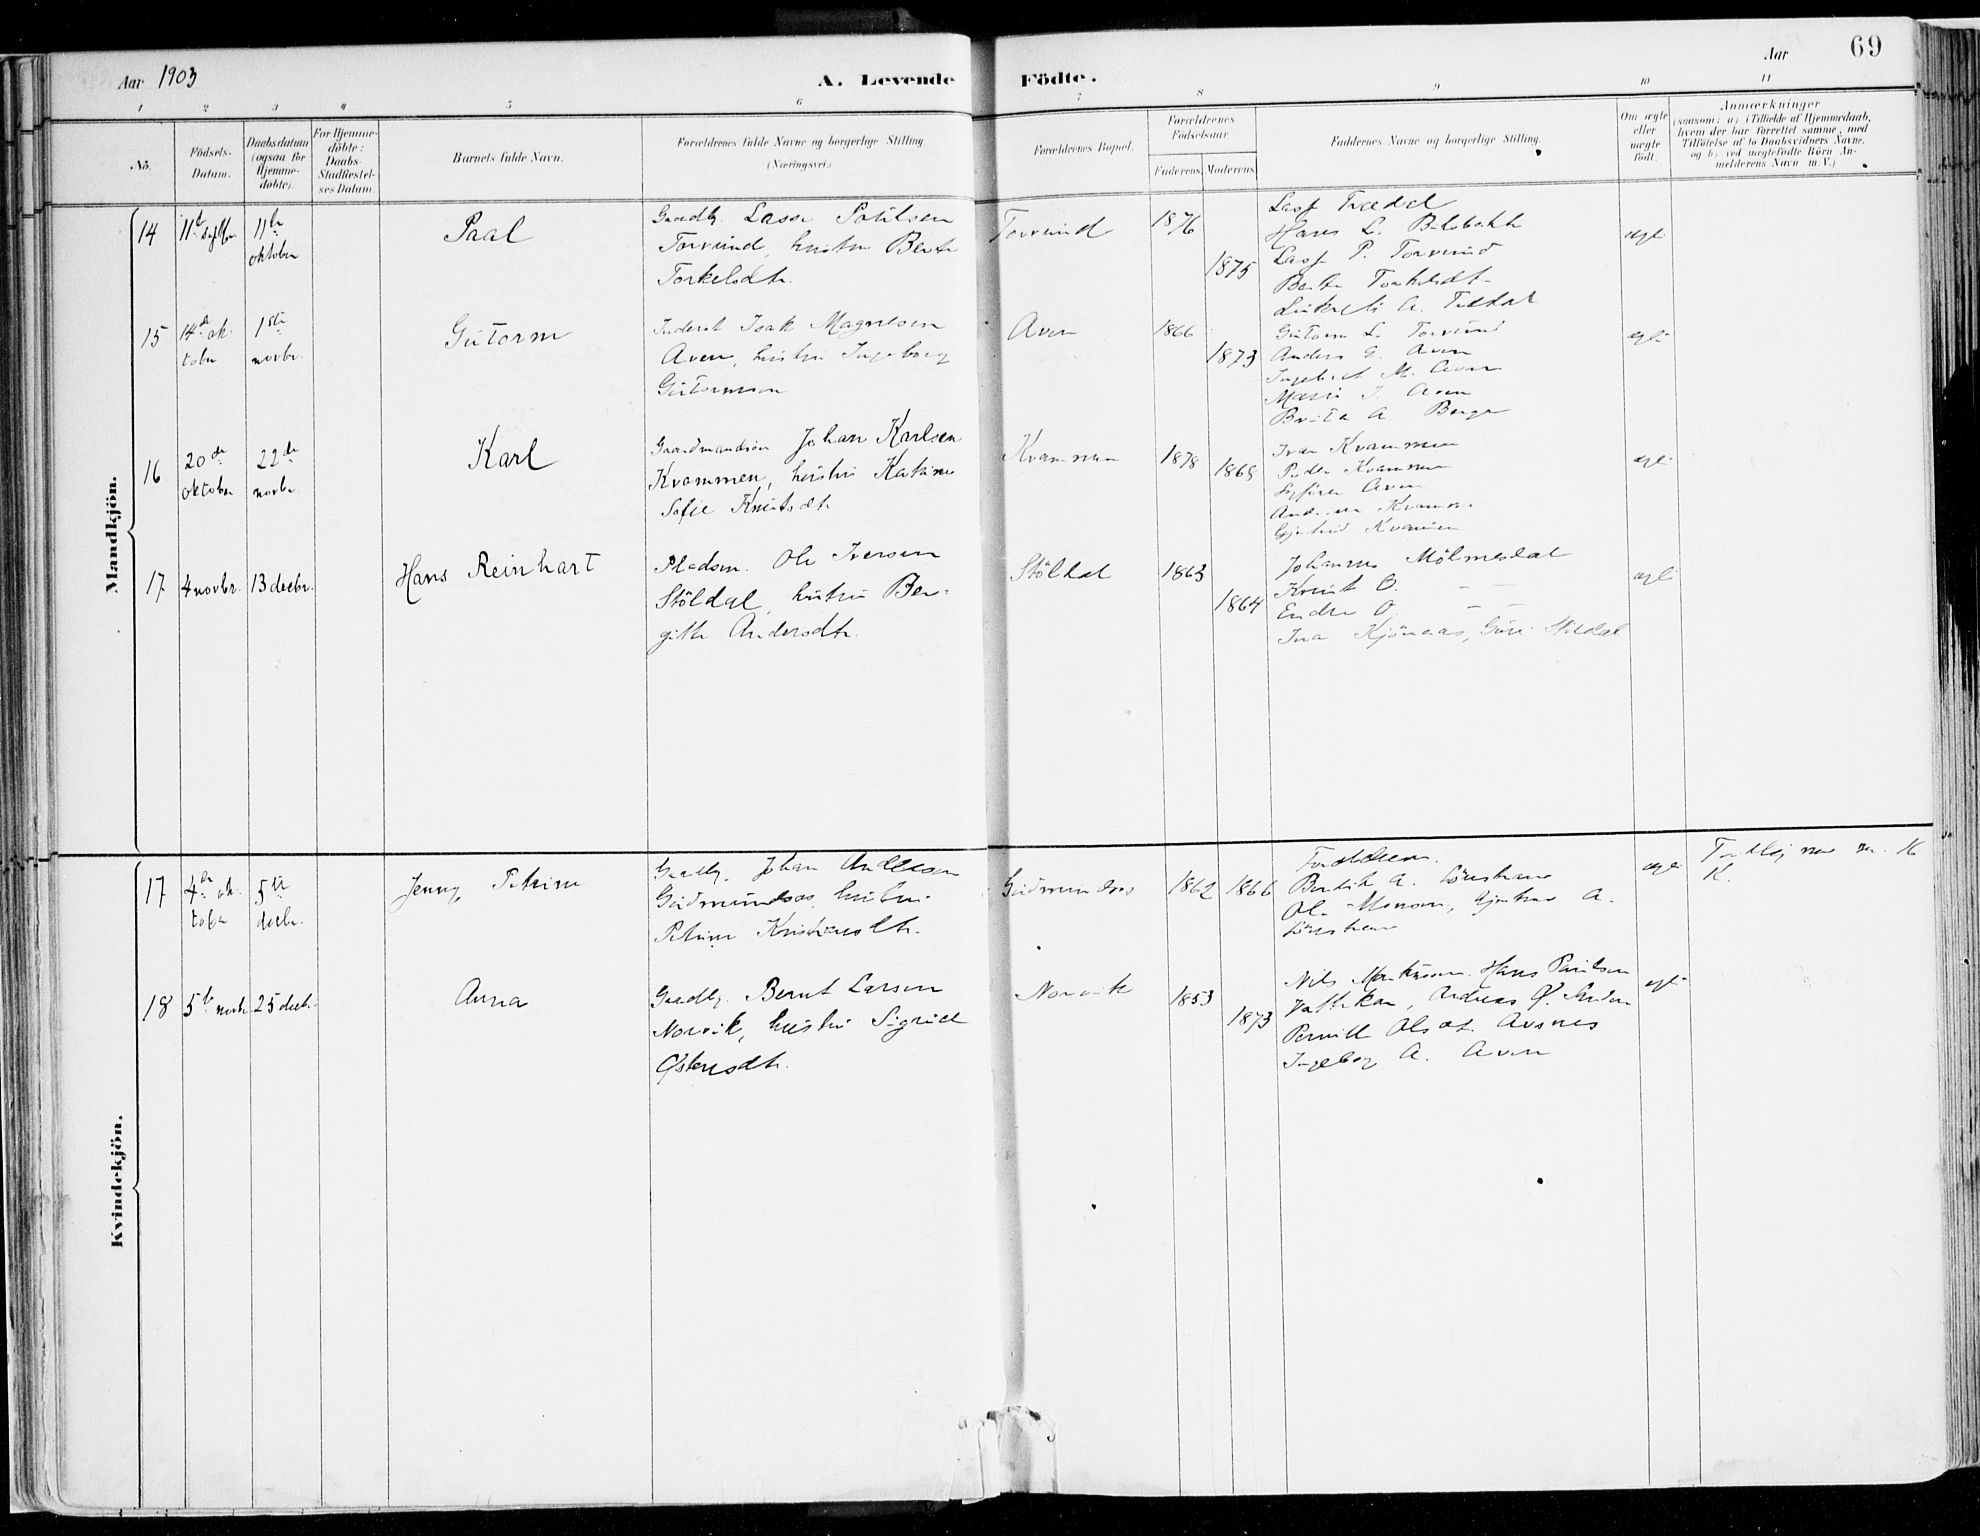 Aar 1903
A. Levende Födte.
Aar
69
1 2 3 4 5 6 7 8 9 10 11
No.
Födsels-Datum.
Daabsdatum (ogsaa for Hjemme-döbte).
For Hjemme-döbte: Daabs-Stadfæstel-ses Datum.
Barnets fulde Navn.
Forældrenes fulde Navne og borgerlige Stilling (Næringsvei).
Forældrenes Bopæl.
Forældrenes Födselsaar.
Faderens. Moderens.
Faddernes Navne og borgerlige Stilling.
Om ægte eller uægte födt.
Anmærkninger
(saasom: a) i Tilfælde af Hjemmedaab, hvem der har forrettet samme, med Tilföielse af to Daabsvidners Navne, og b) ved uægtefödte Börn An-melderens Navn m. V.)
Mandkjön.
14 11te septbr 11te oktober
Paal
Gaardbr. Lasse
Torvund, hustru Berte
Torkelsdtr.
Torvund
1876
1875
Lasse Tredal
Hans L.
Lasse P. Torvund
Berte Torkelsdtr
A. Tredal
15 14de oktober 1ste novbr.
Gutorm
Inderst Isak Magnesen
Aven, hustru Ingeborg
Gutormson
Aven
1866
1873
Gutorm L. Torvund
Anders E. Aven
Ingebret M. Aven
Marie I. Aven
Brita A Berge
16 20de oktober 22de novbr.
Karl
Gaardmandsön Johan Karlsen
Kvammen, hustru Katrine
Sofie Knutsdtr
Kvammen
1878
Ivar Kvammen
Peder Kvammen
Aven
Kvammen
Kvammen
ægte
17 4 novbr. 13 decbr.
Hans Reinhart
Pladsm. Ole Iversen
Stöldal, hustru Ber-
githe Andersdtr.
Stöldal
1863
1864
Johannes Mölmesdal
Knut O. — —
Endre O. — —
ægte
Kvindekjön.
17 4de oktober 5te decbr.
Jenny Petrine
Gaardbr. Johan Andersen
Gudmundsos, hustru
Petrine Kristiansdtr.
Gudmundsos
1862 1866
Forældrene.
Bendik A.
Ole Monsen, A.
ægte
18 5te novbr 25 decbr.
Anna
Gaardbr. Bernt Larsen
Norvik, hustru Sigrid
Østensdtr.
Norvik
1853
1873
Nils Hans
Andreas Ø.
Pernille Olsdt. Avsnes
Ingeborg A. Aven
ægte